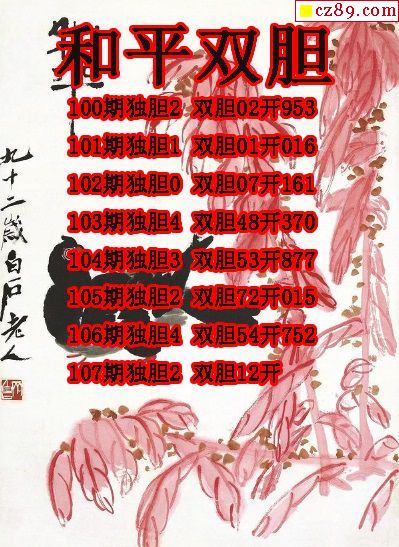 cz89.com
和平双胆
100期独胆2 双胆02开953
101期独胆1 双胆01开016
102期独胆0 双胆07开161
103期独胆4 双胆48开370
104期独胆3 双胆53开877
105期独胆2 双胆72开015
106期独胆4 双胆54开752
107期独胆2 双胆12开
九十二岁白石老人